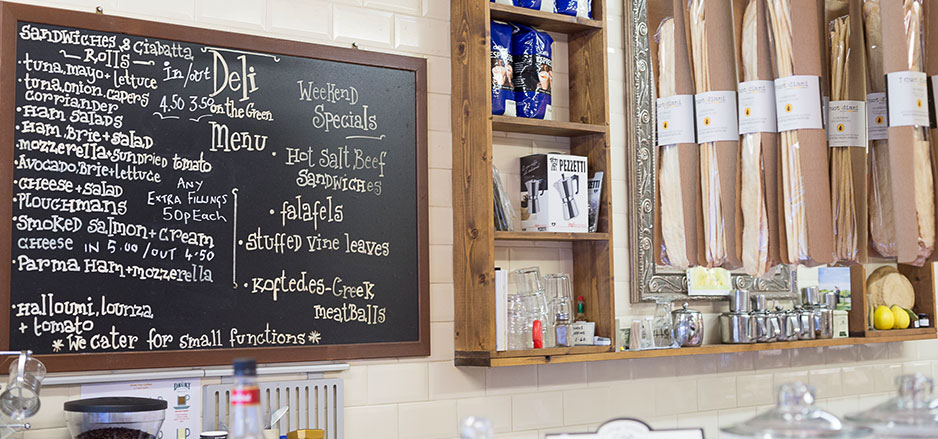 Sandwiches & Ciabatta
- Rolls -
in/out
4.50 3.50
Deli
on the Green
Menu
• tuna, mayo + lettuce
tuna, onion, capers
corriander
• Ham salads
• Ham, brie + salad
• mozzerella + sundried tomato
• Avocado, Brie + lettuce
• cheese + salad
• Ploughmans
Any
Extra Fillings
50p Each
• Smoked Salmon + cream
cheese in 5.00 / out 4.50
• Parma Ham + mozzerella
• Halloumi, lounza
+ tomato
Weekend
Specials
• Hot Salt Beef
Sandwiches
• falafels
• Stuffed vine leaves
• Koftedes - Greek
meatballs
* We cater for small functions *
PEZZETTI